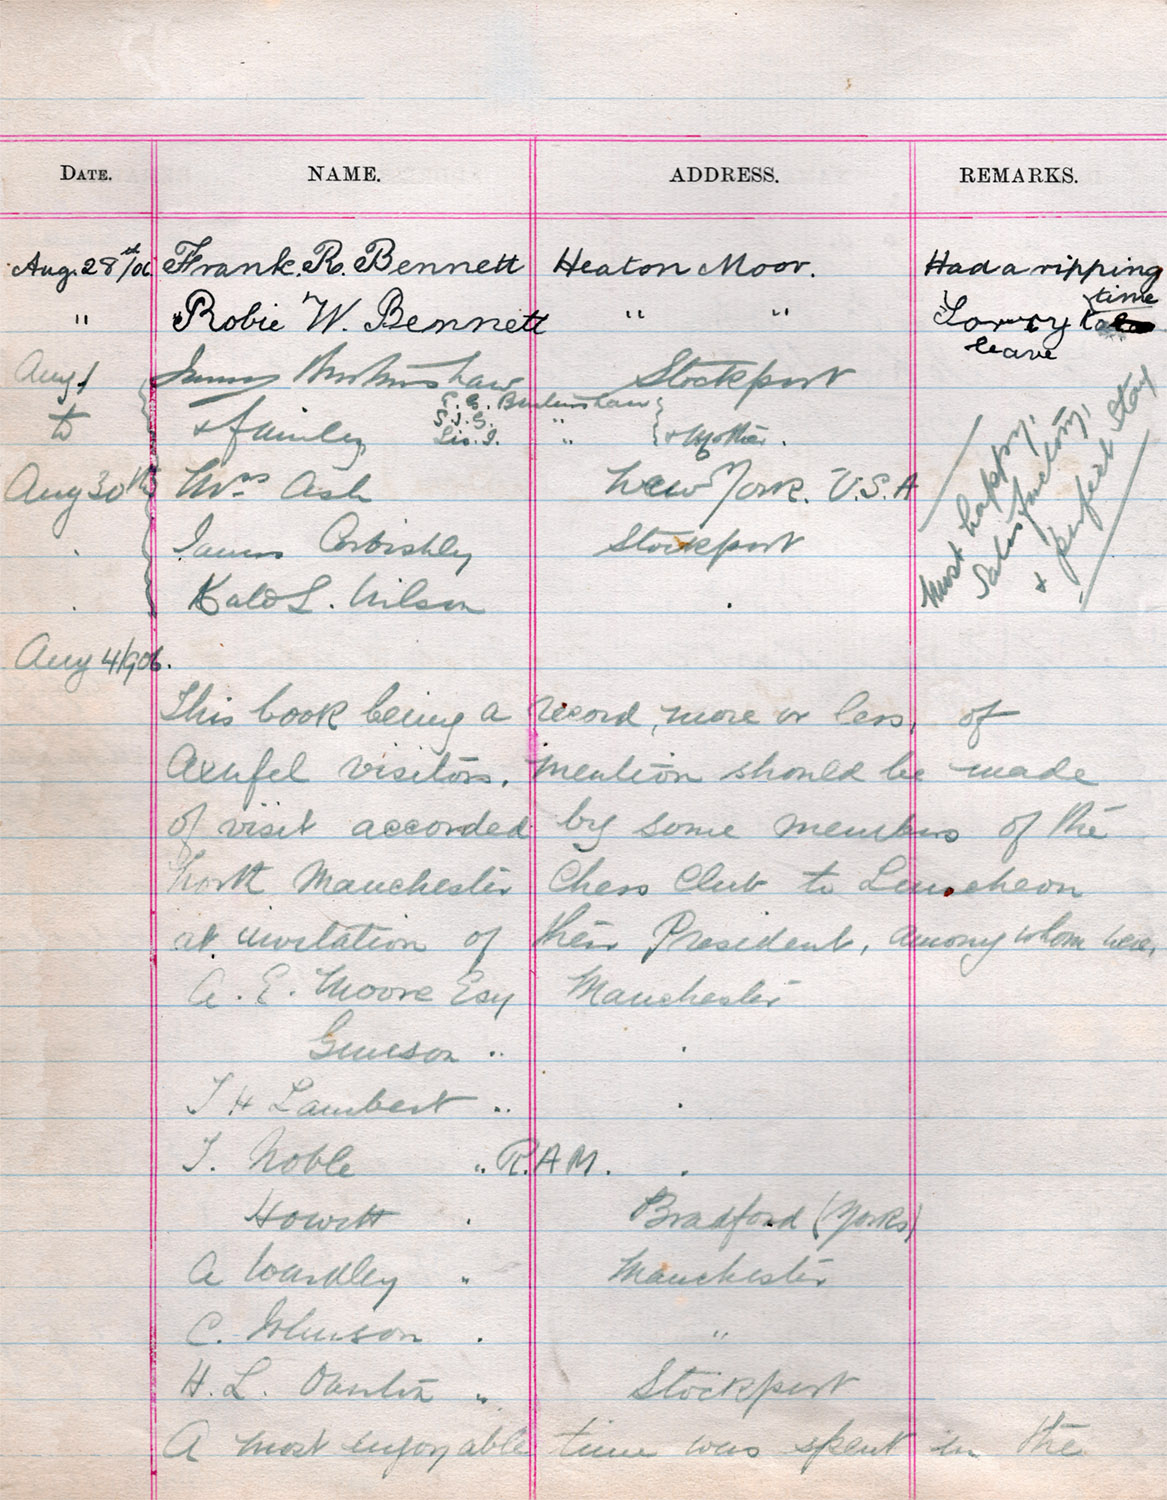 DATE. NAME. ADDRESS. REMARKS.
Aug. 28st/06 Frank. R. Bennett Heaton Moor. Had a ripping
time
" Robie W. Bennett " " Sorry to
leave
Aug 1 James Stockport
to & family T. E. S. J. G. Lis. I. " " & Mother.
Aug 30th Mrs Ash New York. U.S.A
James Corbishley Stockport
Kate L. Wilson .
Most happy,
satisfactory,
& perfect stay
Aug 4/906.
This book being a record, more or less, of
Axufel visitors, mention should be made
of visit accorded by some members of the
North Manchester Chess Club to Luncheon
at invitation of their President, among whom were,
A. E. Moore Esq Manchester
" .
T H Lambert " .
T. Noble " R.A.M. .
Howitt . Bradford (Yorks)
A Wardley " Manchester
C. Johnson . "
H. L. " Stockport
A most enjoyable time was spent in the